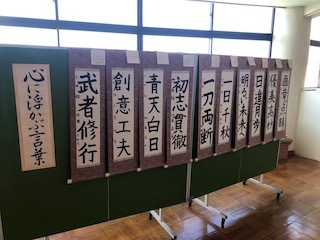 心に浮かぶ言葉
武者修行
創意工夫
青天白日
初志貫徹
一刀両断
一日千秋
明るい未来へ
日進月歩
画竜点睛